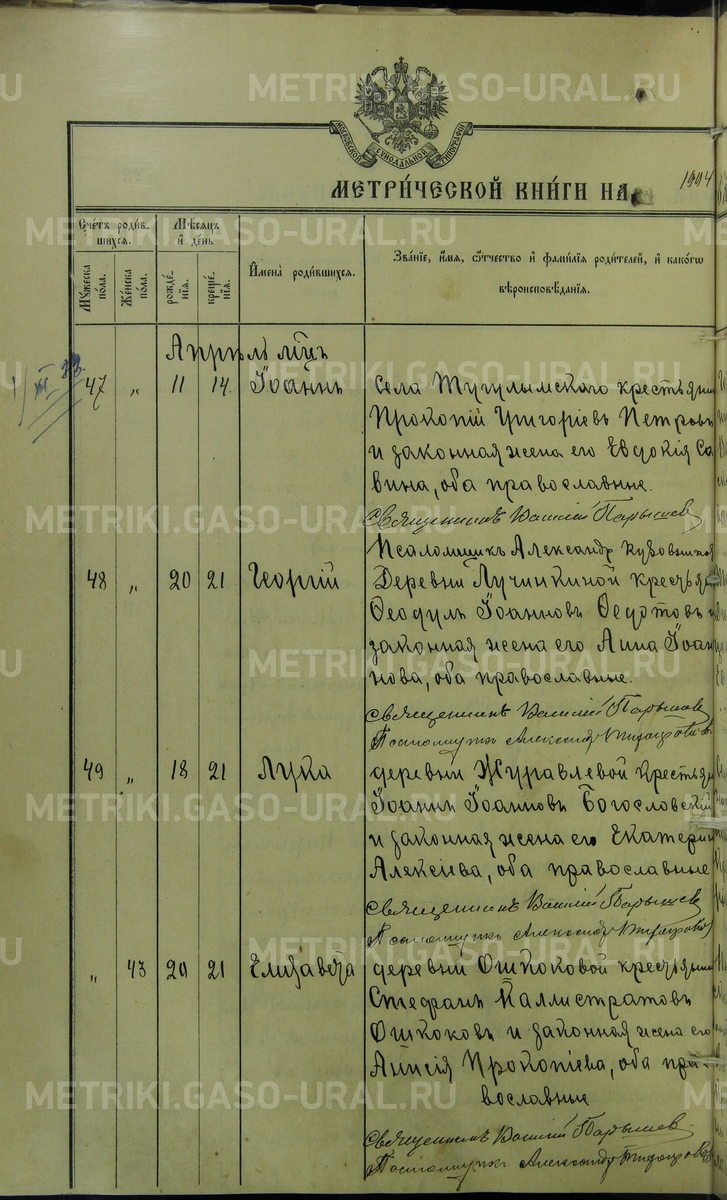 METRIKI.GASO-URAL.RU
МОСКОВСКОЙ СѴНОДАЛЬНОЙ ТИПОГРАФІИ
МЕТРИ́ЧЕСКОЙ КНИ́ГИ НА 1904
Сче́тъ роди́в-
шихся.
Мѣсяцъ
и҆ де́нь
Мꙋ́жеска по́ла.
Же́нска по́ла.
рожде́-
нїѧ.
креще́-
нїѧ.
И҆мена̀ роди́вшихся.
Зва́нїе, и҆́мя, ѻ҆́тчество и҆ фами́лїѧ роди́телей, и҆ како́гѡ
вѣроисповѣ́данїѧ.
Апрѣль мѣцъ
47 „ 11 14. Іоаннъ Села Тугулымскаго крестьянин
Прокопій Григоріевъ Петровъ
и законная жена его Евдокія Са
вина, оба православные.
Священникъ Василій Парышев
Псаломщикъ Александр
48 „ 20 21 Георгій Деревни Лучинкиной крестья
Ѳеодулъ Іоанновъ Ѳедотовъ и
законная жена его Анна Іоан
нова, оба православные.
Священникъ Василій Парышев
Псаломщикъ Александр
49 „ 18 21 Лука деревни Журавлевой крестья
Іоаннъ Іоанновъ Богословскій
и законная жена его Екатерин
Алексіева, оба православные
Священникъ Василій Парышев
Псаломщикъ Александр
„ 43 20 21 Елизавета деревни Ошкоковой крестьянин
Стефанъ Каллистратовъ
Ошкоковъ и законная жена его
Анисія Прокопіева, оба пра-
вославные
Священникъ Василій Парышев
Псаломщикъ Александр